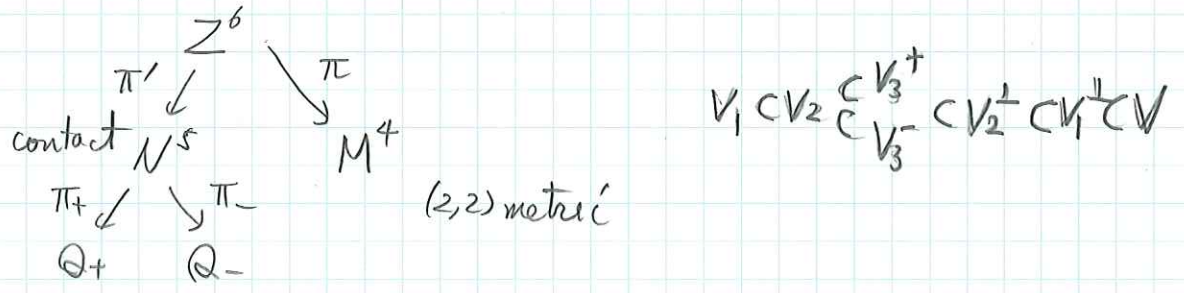 Z⁶
π′ π
contact N⁵ M⁴
π+ π− (2,2) metric
Q+ Q−
V₁ ⊂ V₂ ⊂ V₃⁺ ⊂ V₂^⊥ ⊂ V₁^⊥ ⊂ V
⊂ V₃⁻